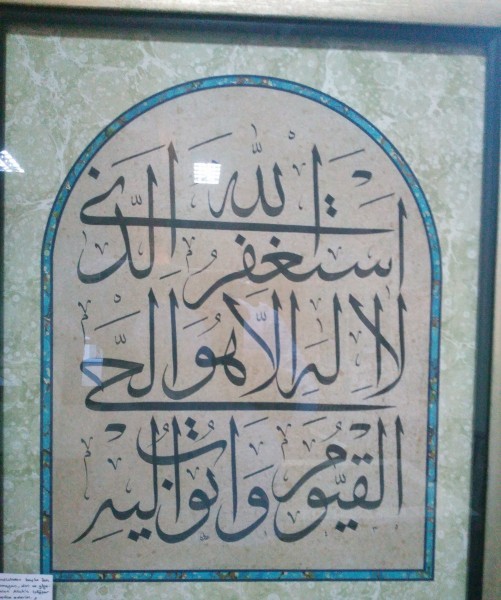 استغفر الله الذي
لا اله الا هو الحي
القيوم واتوب اليه